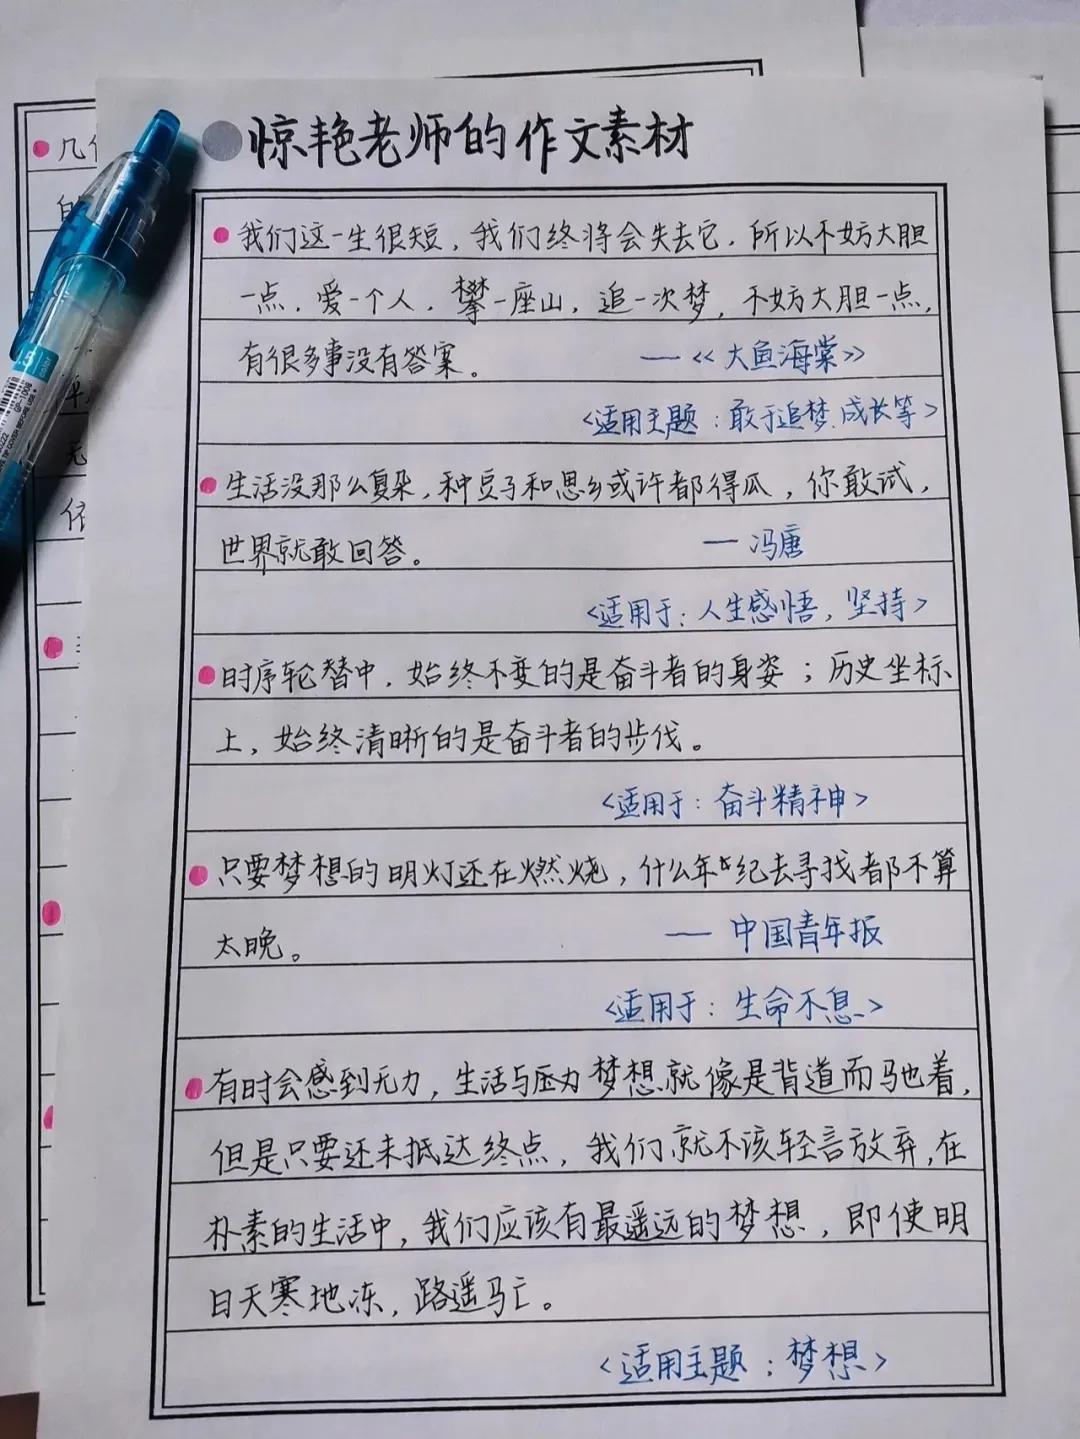 惊艳老师的作文素材
我们这一生很短，我们终将会失去它，所以不妨大胆
一点，爱一个人，攀一座山，追一次梦，不妨大胆一点，
有很多事没有答案。 —《大鱼海棠》
<适用主题：敢于追梦、成长等>
生活没那么复杂，种豆子和思乡或许都得瓜，你敢试，
世界就敢回答。 — 冯唐
<适用于：人生感悟，坚持>
时序轮替中，始终不变的是奋斗者的身姿；历史坐标
上，始终清晰的是奋斗者的步伐。
<适用于：奋斗精神>
只要梦想的明灯还在燃烧，什么年纪去寻找都不算
太晚。 — 中国青年报
<适用于：生命不息>
有时会感到无力，生活与压力梦想就像是背道而驰着，
但是只要还未抵达终点，我们就不该轻言放弃，在
朴素的生活中，我们应该有最遥远的梦想，即使明
日天寒地冻，路遥马亡。
<适用主题：梦想>
几